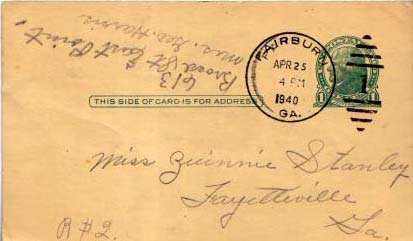 Mrs. Geo. Harris
613
Broad St East Point,
FAIRBURN
APR 25
4 PM
1940
GA.
1
THIS SIDE OF CARD IS FOR ADDRESS
Miss Quinnie Stanley
Fayetteville
Ga.
R#2.